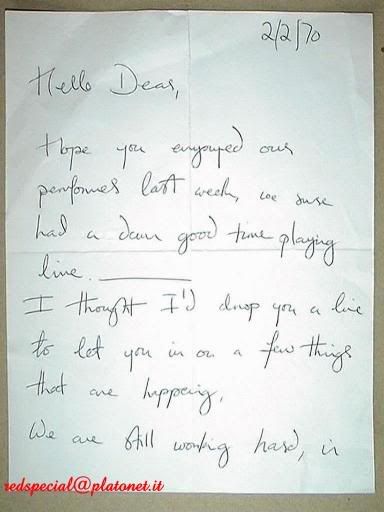 2/2/70
Hello Dear,
Hope you enyouped our
performes last week, we sure
had a damn good time playing
live.
I thought I'D drop you a line
to let you in on a few things
that are happeing,
We are still working hard, in
redspecial@platonet.it